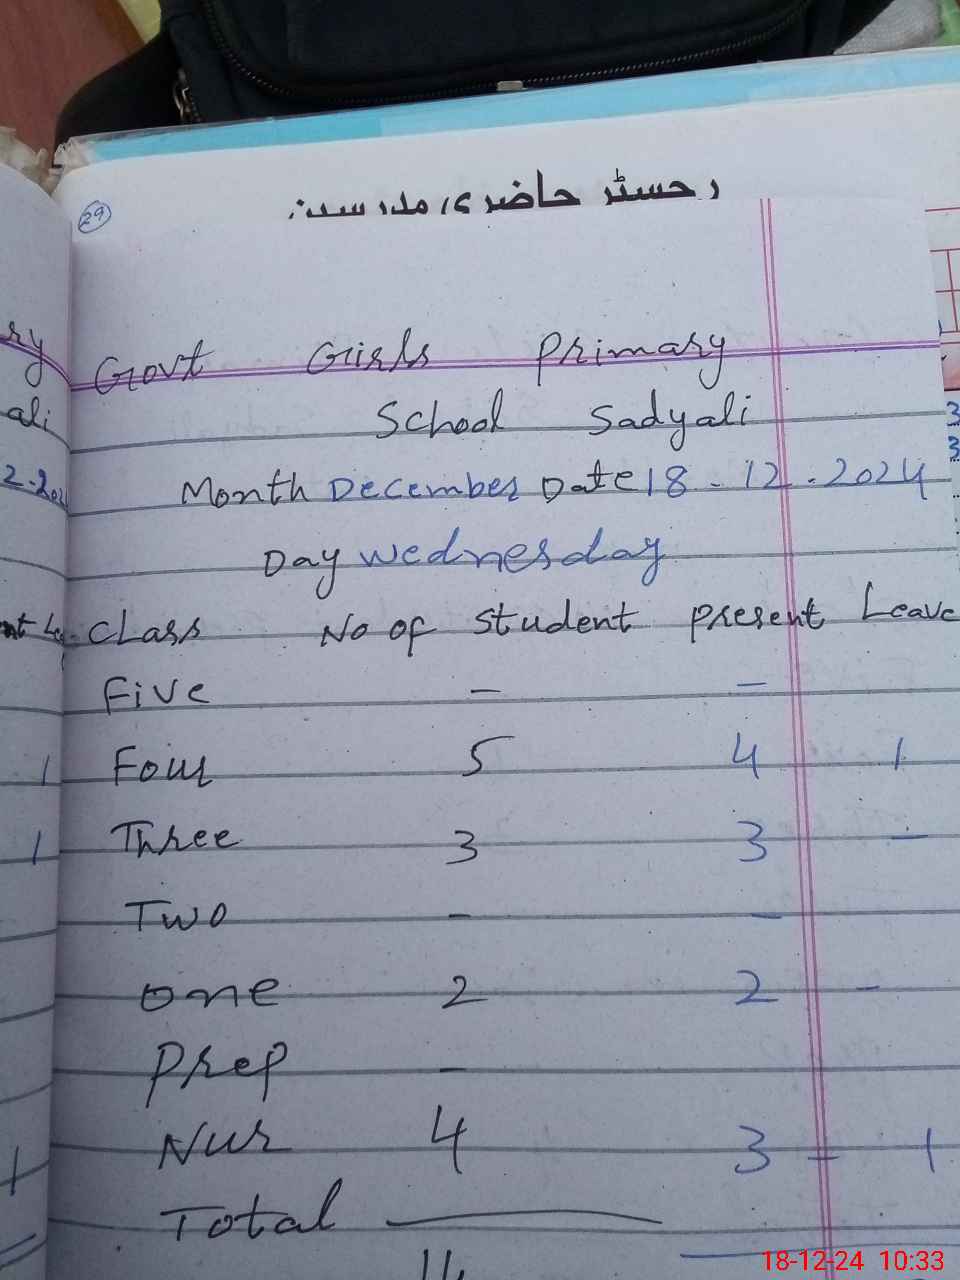 رجسٹر حاضری مدرسین
29
Govt Girls Primary
School Sadyali
Month December Date 18-12-2024
Day Wednesday
Class No of Student Present Leave
Five - -
Four 5 4 1
Three 3 3 -
Two - -
One 2 2 -
Prep -
Nur 4 3 - 1
Total
14
ry
ali
1
1
1
3
3
18-12-24 10:33